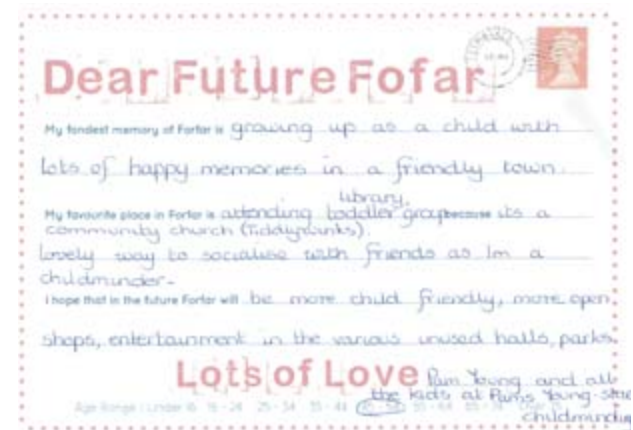 Dear Future Fofar
My fondest memory of Forfar is growing up as a child with
lots of happy memories in a friendly town.
library,
My favourite place in Forfar is attending toddler group because its a
community church (Tiddlywinks).
lovely way to socialise with friends as Im a
childminder.
I hope that in the future Forfar will be more child friendly, more open
shops, entertainment in the various unused halls, parks.
Lots of Love Pam Young and all
the kids at Pams Young
Age Range: Under 16 16 - 24 25 - 34 35 - 44 55 - 64
childminding